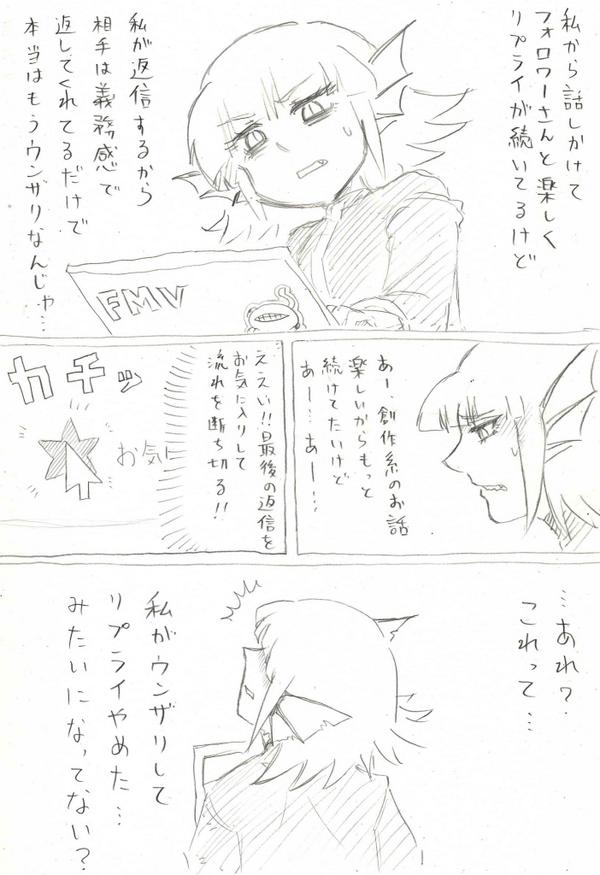 私から話しかけて
フォロワーさんと楽しく
リプライが続いてるけど
私が返信するから
相手は義務感で
返してくれてるだけで
本当はもうウンザリなんじゃ…
FMV
あー、創作系のお話
楽しいからもっと
続けてたいけど
あー…あー…
ええい!!最後の返信を
お気に入りして
流れを断ち切る!!
カチッ
お気に
…あれ?
これって…
私がウンザリして
リプライやめた…
みたいになってない?